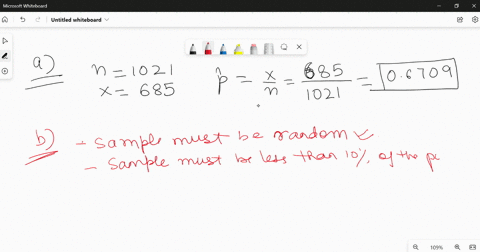 Microsoft Whiteboard
Untitled whiteboard
a) n = 1021 p̂ = x/n = 685/1021 = 0.6709
x = 685
b) - sample must be random ✓
- sample must be less than 10% of the p
109%